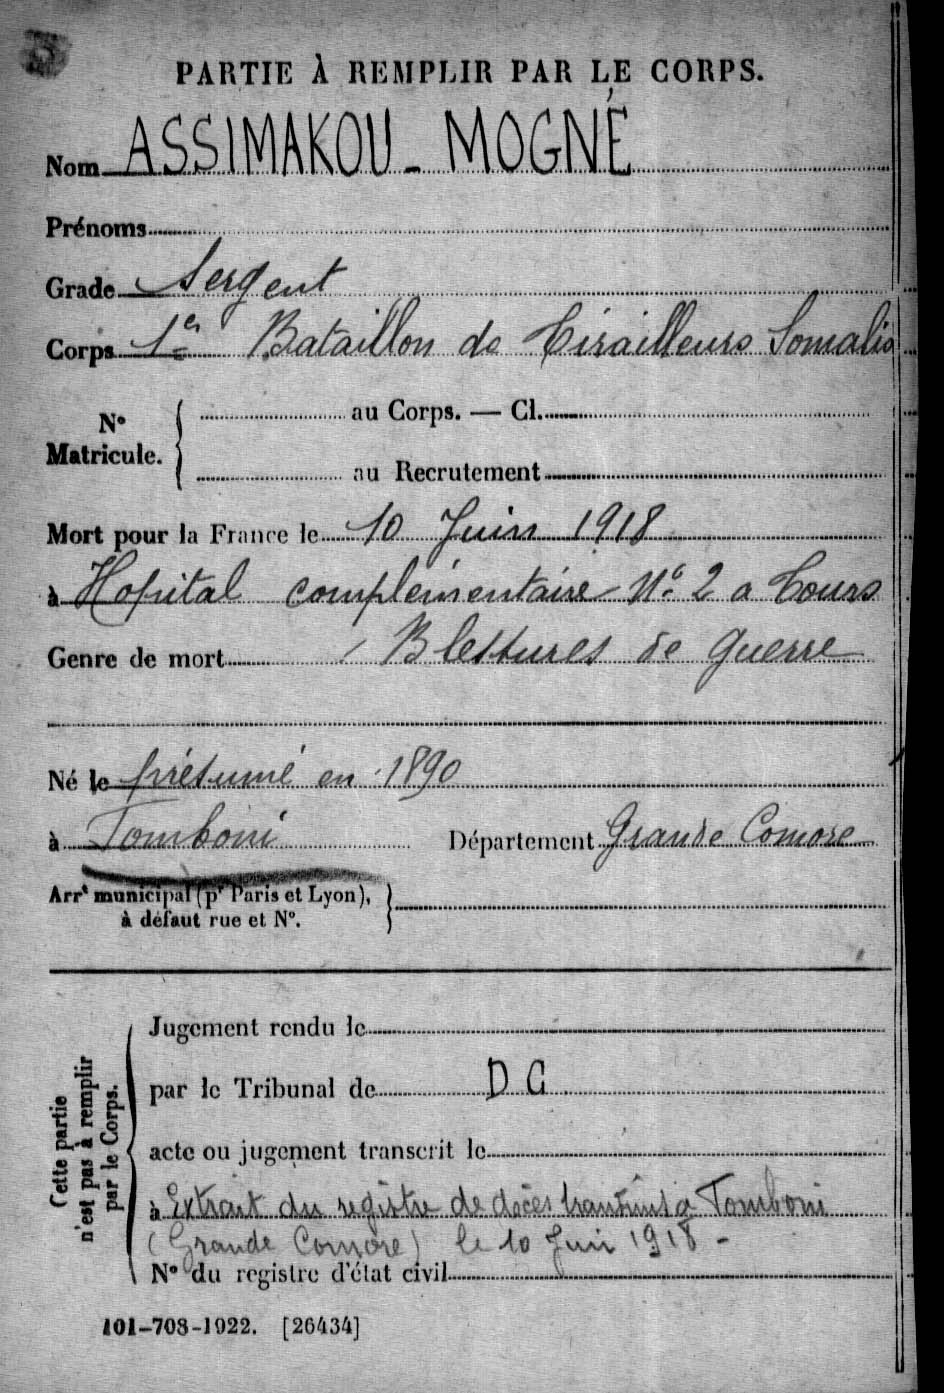 PARTIE À REMPLIR PAR LE CORPS.
Nom ASSIMAKOU - MOGNÉ
Prénoms
Grade Sergent
Corps 1er Bataillon de Tirailleurs Somalis
N° Matricule. { au Corps. — Cl.
au Recrutement
Mort pour la France le 10 Juin 1918
à Hopital complémentaire N° 2 a Tours
Genre de mort Blessures de guerre
Né le présumé en 1890
à Tomboni Département Grande Comore
Arrt municipal (pr Paris et Lyon),
à défaut rue et N°.
Cette partie n'est pas à remplir par le Corps.
Jugement rendu le
par le Tribunal de D C
acte ou jugement transcrit le
à Extrait du registre de décès transmis a Tomboni
(Grande Comore) le 10 Juin 1918 -
N° du registre d'état civil
101-708-1922. [26434]